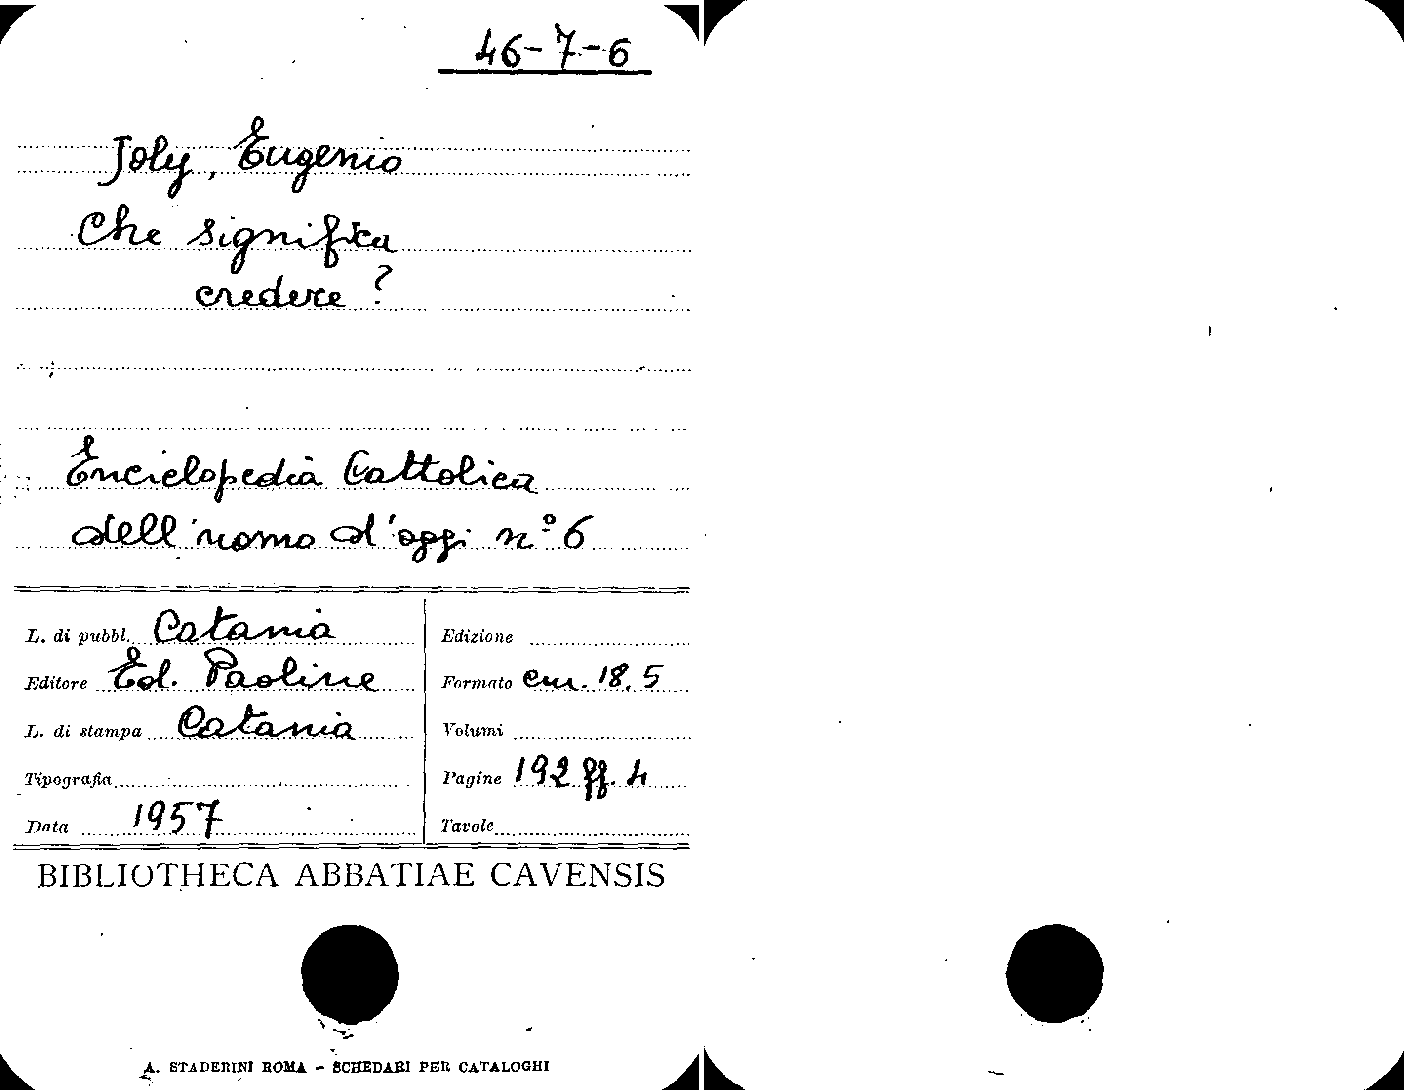 46-7-6
Joly, Eugenio
Che significa
credere?
Enciclopedia Cattolica
dell'uomo d'oggi n° 6
L. di pubbl. Catania
Editore Ed. Paoline
L. di stampa Catania
Tipografia
Data 1957
Edizione
Formato cm. 18,5
Volumi
Pagine 192 ff. 4
Tavole
BIBLIOTHECA ABBATIAE CAVENSIS
A. STADERINI ROMA - SCHEDARI PER CATALOGHI